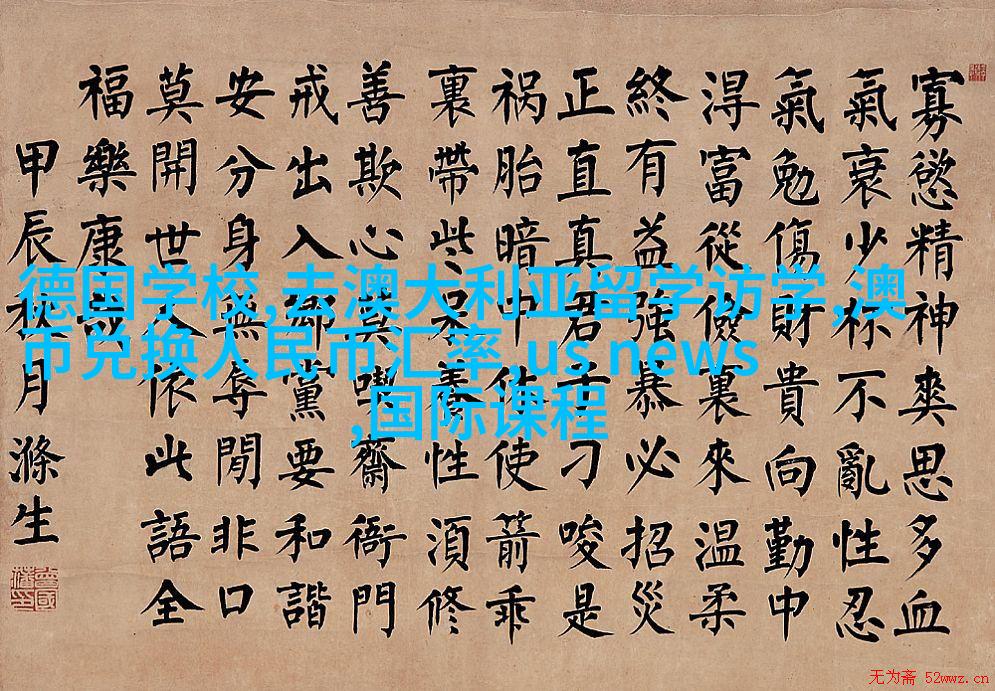 寡慾精神爽思多血
氣衰少杯不亂性忍
氣勉傷財貴向勤中
淂富從儉裏來温柔
終有益強暴必招災
正直真君子刁唆是
祸胎暗中休使箭乖
裏帶些呆養性湏修
善欺心莫喫齋衙門
戒出入鄉黨要和諧
安分身無辱閒非口
莫開世人依此語全
福樂康
甲辰秋月滌生
德国学校,去澳大利亚留学访学,澳
币兑换人民币汇率,us news
,国际课程
无为斋 52wwz.cn